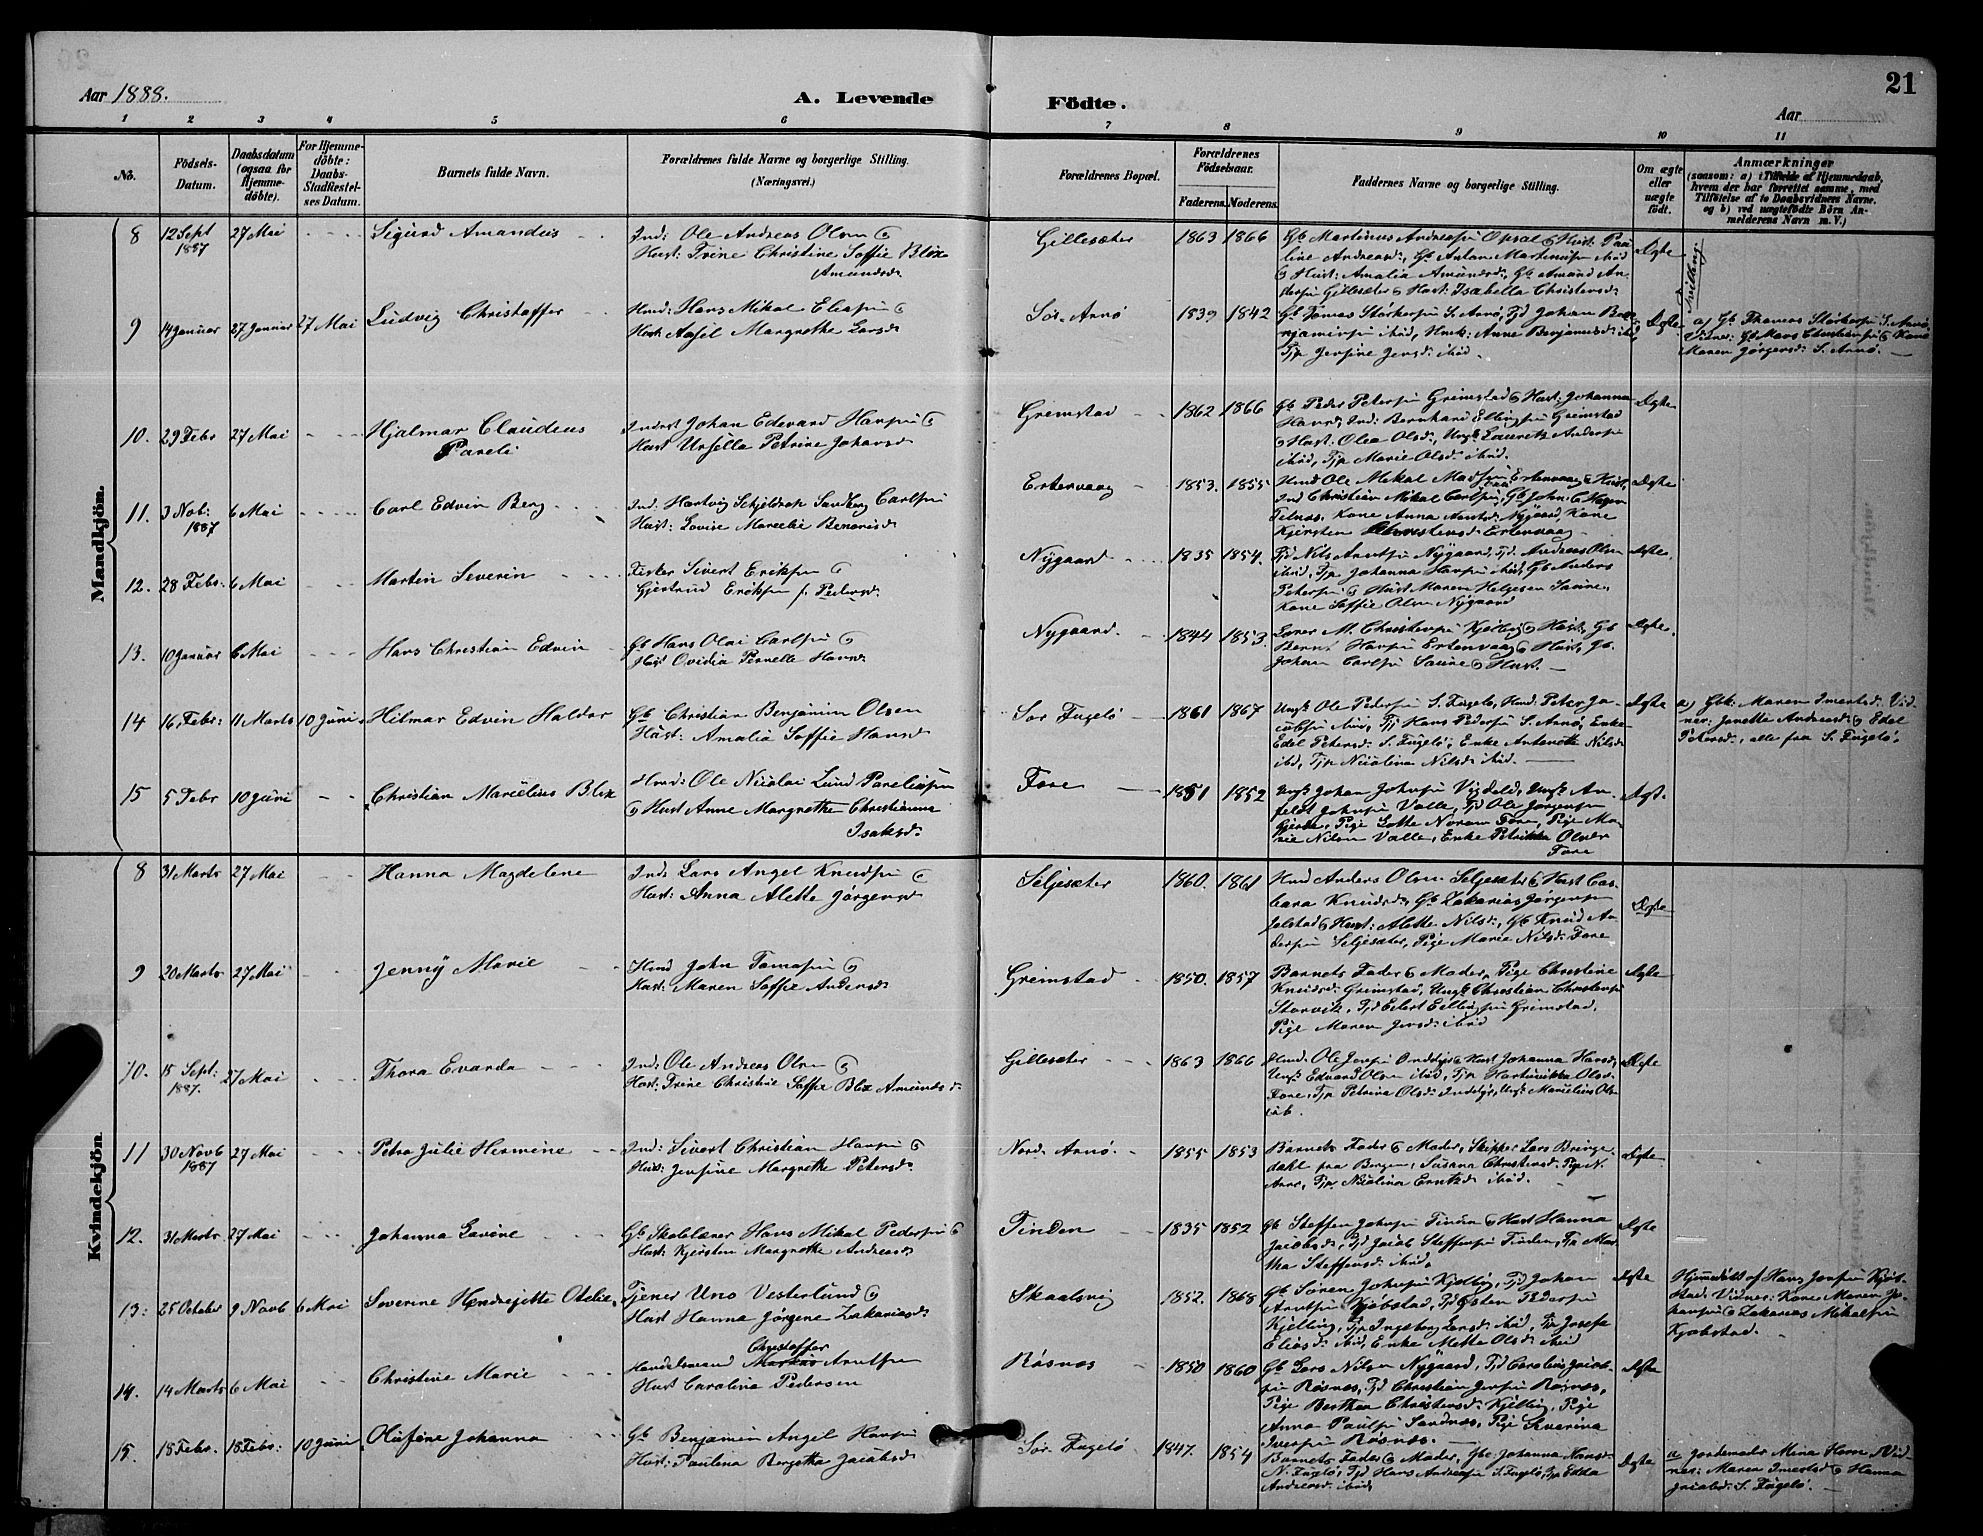 21
Aar 1888.
A. Levende Födte.
Aar
1 2 3 4 5 6 7 8 9 10 11
No.
Födsels-Datum.
Daabsdatum (ogsaa for Hjemmedöbte).
For Hjemmedöbte: Daabs-Stadfæstelses Datum.
Barnets fulde Navn.
Forældrenes fulde Navne og borgerlige Stilling. (Næringsvei.)
Forældrenes Bopæl.
Forældrenes Födselsaar.
Faderens. Moderens.
Faddernes Navne og borgerlige Stilling.
Om ægte eller uægte födt.
Anmærkninger
(saasom: a) i Tilfælde af Hjemmedaab, hvem der har forrettet samme, med Tilföielse af to Daabsvidners Navne. og b) ved uægtefödte Börn Anmelderens Navn m. V.)
Mandkjön.
8 12 Sept 1887 27 Mai Sigurd Amandus
Ind: Ole Andreas Olsen &
Hust: Trine Christine Soffie Blix
Amundsd.
Gillesæter 1863 1866
Gb Martinus Andreasen Opsal & Hust: Pau-
line Andreasd:, Gb Anton Martinussen ibid
& Hust: Amalia Amundsd:, Gb Amund An-
dersen Gillesæter & Hust: Isabella Christensd:
Ægte
Tvilling.
9 14 Januar 27 Januar 27 Mai Ludvig Christoffer
Hmd: Hans Mikal Eliassen &
Hust: Axsel Margrethe Larsd:
Sör-Arnö 1839 1842
Gb Tomas Størkersen S. Arnö, Tjd Johan Ben-
jaminsen ibid, Huusk: Anne Benjaminsd: ibid,
Tjp Jensine Jensd: ibid.
Ægte
a) Gb Thomas Størkersen S. Arnö,
Vidner: Gb Mons Christensen & Kone
Maren Jørgensd: S. Arnö.
10. 29 Febr 27 Mai Hjalmar Claudius
Pareli
Inderst Johan Edevard Hansen &
Hust Ursille Petrine Johansd
Grimstad 1862 1866
Gb Peder Petersen Grimstad & Hust. Johanna
Hansd, Ind: Bernhard Ellingsen Grimstad
& Hust: Olea Olsd:, Ungk Laurits Andersen
ibid, Tjp Marie Olsd: ibid.
Ægte
11. 3 Nob: 1887 6 Mai Carl Edvin Berg
Ind: Hartvig Schjeldrop Sandberg Carlsen
Hust: Lovise Marcelie Benoniesd:
Ertenvaag 1853. 1855
Hmd Ole Mikal Madsen Ertenvaag & Hust,
Ind Christian Mikal Carlsen, Gb John C Hagen
Telnæs, Kone Anna Arntsd: Nygaard, Kone
Kjersten Christensd: Ertenvaag
Ægte
12. 28 Febr. 6 Mai Martin Severin
Fisker Sivert Eriksen &
Gjertrud Eriksen f. Pedersd:
Nygaard 1835 1854.
Tjd Nils Arntsen Nygaard, Tjd Andreas Olsen
ibid, Tjp Johanna Hansen ibid, Gb Anders
Petersen & Hust Maren Helgesen Saure,
Kone Soffie Olsen Nygaard
Ægte
13. 10 Januar 6 Mai Hans Christian Edvin
Gb Hans Olai Carlsen &
Hust Ovidia Pernelle Hansd:
Nygaard. 1844 1853.
Lærer M. Christensen Kjelling & Hust, Gb
Bernt Hansen Ertenvaag & Hust, Gb.
Johan Carlsen Saure & Hust.
Ægte
14 16 Febr: 11 Marts 10 Juni Hilmar Edvin Haldor
Gb Christian Benjamin Olsen
Hust: Amalia Soffie Hansd:
Sör Fugelö 1861 1867
Ungk Ole Pedersen S. Fugelö, Hmd. Peter Ja-
cobsen ibid, Tjd Hans Pedersen S. Arnö, Enke
Edel Petersd: S. Fugelö, Enke Antonette Nilsd:
ibd, Tjp Nicolina Nilsd: ibid.
Ægte
a) Gbk: Maren Imertsd: Vid-
ner: Janette Andreasd: & Edel
Petersd:, alle fra S. Fugelö.
15 5 Febr 10 Juni Christian Marcelius Blix
Hmd: Ole Nicolai Lund Pareliussen
& Hust Anne Margrethe Christianna
Isaksd:
Fore 1851 1852
Ungk Johan Johnsen Vigdel, Ungk An-
Johnsen Valle, Tjd Ole Jørgensen
Gjerde, Pige Lotte Norum Fore, Pige Ma-
rie Nilsen Valle, Enke Petrikka Olsen
Fore
Ægt.
Kvindekjön.
8 31 Marts 27 Mai Hanna Magdelene
Ind: Lars Angel Knudsen &
Hust: Anna Alette Jørgensd
Seljesæter 1860. 1861
Hmd Anders Olsen Seljesæter & Hust Bar-
bara Knudsd:, Gb Zakarias Jørgensen
Jelstad & Hust: Alette Nilsd:, Gb Knud An-
dersen Seljesæter, Pige Marie Nilsd: Fore
Ægte
9 20 Marts 27 Mai Jenny Marie
Hmd John Tomasen &
Hust: Maren Soffie Andersd:
Grimstad 1850. 1857
Barnets Fader & Moder, Pige Christine
Knudsd: Grimstad, Ungk Christian Christensen
Storvik, Tjd Edert Ellingsen Grimstad,
Pige Maren Jensd: ibid
Ægte
10. 15 Sept: 1887. 27 Mai Thora Evarda
Ind: Ole Andreas Olsen &
Hust: Trine Christine Soffie Blix Amundsd:
Gillesæter 1863 1866
Hmd: Ole Jensen & Hust Johanna Hansd,
Ungk Edvard Olsen ibid, Tjp Hartvikka Olsd:
Fore, Tjp Petrina Olsd: Indedyr, Ungk Marcelius Olsen
ib.
Ægte
11 30 Novb 1887 27 Mai Petra Julie Hermine
Ind: Sivert Christian Hansen &
Hust: Jensine Margrethe Petersd:
Nord. Arnö. 1855 1853
Barnets Fader & Moder, Skipper Lars Bringe-
dahl fra Bergen, Susana Christensd: Pige N.
Arnö, Tjp Nicolina Erntsd: ibid.
Ægte
12. 31 Marts 27 Mai Johanna Lavine
Gb Skolelærer Hans Mikal Pedersen &
Hust: Kjersten Margrethe Andreasd:
Tinden 1835 1852
Gb Steffen Johnsen Tinden & Hust Hanna
Jacobsd:, Tjd Jacob Steffensen Tinden, Tjp Mar-
tha Steffensd: ibid,
Ægte
13: 25 October 9 Novb 6 Mai Severine Hendrejette Otelie
Tjener Uno Vesterlund &
Hust Hanna Jørgene Zakariasd:
Skaalsvig 1852. 1868
Gb Søren Johnsen Kjelling, Tjd Johan
Arntsen Kjøbstad, Tjd Østen Pedersen
Kjelling, Tjp Ingeborg Larsd: ibid, Tjp Josefa
Eliasd: ibid, Enke Mette Olsd: ibid
Ægte
Hjemmedöbt af Hans Jensen Kjøb-
stad. Vidner: Kone Maren Jo-
hansen & Zakarias Mikalsen
Kjøbstad.
14. 14 Marts 6 Mai Christine Marie
Christoffer
Handelsmand Markus Arntsen
Hust Carolina Pedersen
Røsnæs 1850 1860
Gb Lars Nilsen Nygaard, Tjd Carolius Jacob-
sen Røsnæs, Tjd Christian Jensen Røsnæs,
Pige Berthea Christensd: Kjelling, Pige
Anna Paulsen Sandnæs, Pige Severina
Iversen Røsnæs.
Ægte
15. 18 Febr. 18 Febr: 10 Juni Olufine Johanna
Gb Benjamin Angel Hansen
Hust: Paulina Bergetha Jacobsd:
Sör. Fugelö 1847. 1854
Barnets Fader & Moder, Gbe Johanna Hansd:
N. Fugelö, Tjd Hans Andreasen S. Fugelö, Tjp Edika
Andreasd: ibid,
Ægte
a Jordemoder Mina Horn, Vid-
ner: Maren Imertsd: & Hanna
Jacobsd: S. Fugelö.